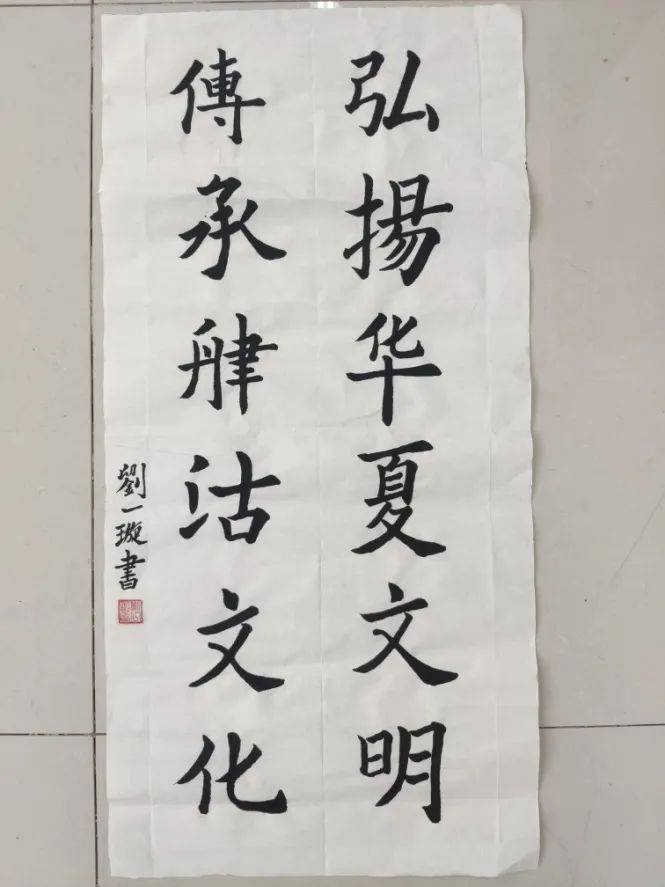 弘揚华夏文明
傳承沽文化
劉一璇書